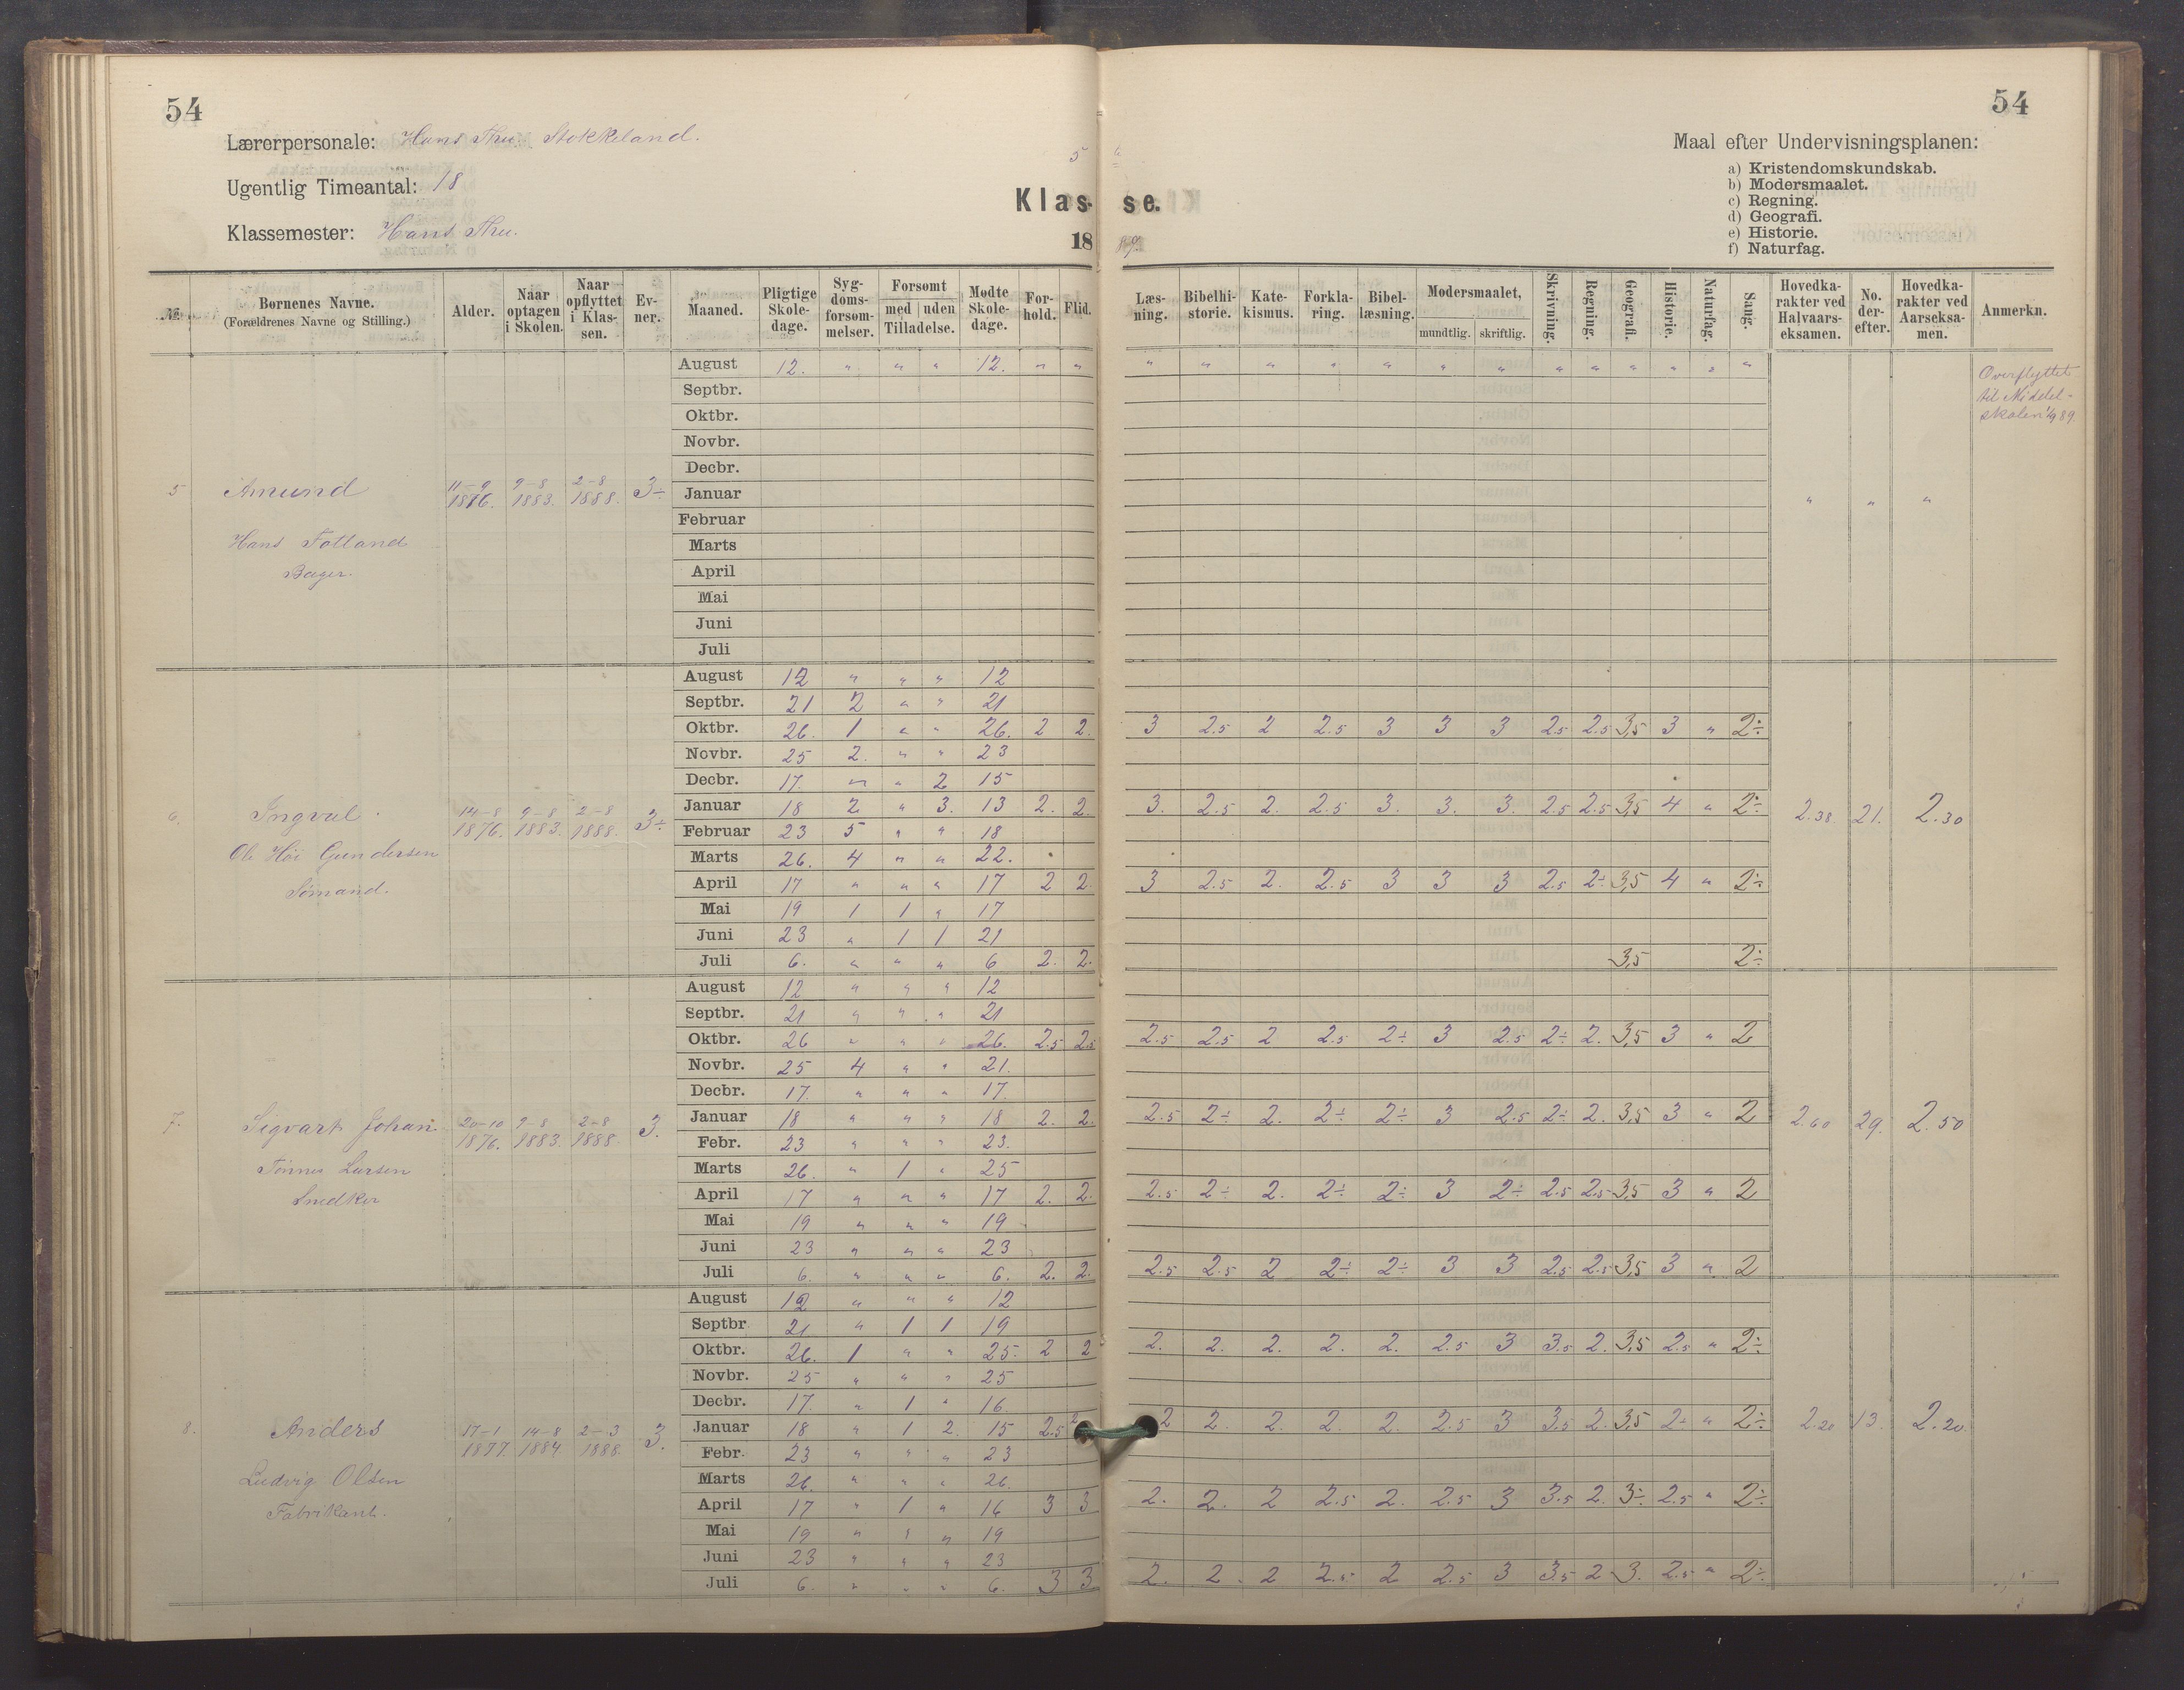 54
54
Lærerpersonale: Hans Thu. Stokkeland.
Ugentlig Timeantal: 18
Klassemester: Hans Thu.
5
Klas- se.
18 89.
Maal efter Undervisningsplanen:
a) Kristendomskundskab.
b) Modersmaalet.
c) Regning.
d) Geografi.
e) Historie.
f) Naturfag.
№. Børnenes Navne. (Forældrenes Navne og Stilling.) Alder. Naar optagen i Skolen. Naar opflyttet i Klassen. Evner. Maaned. Pligtige Skoledage. Sygdomsforsømmelser. Forsømt med uden Tilladelse. Mødte Skoledage. Forhold. Flid. Læsning. Bibelhistorie. Katekismus. Forklaring. Bibellæsning. Modersmaalet, mundtlig. skriftlig. Skrivning. Regning. Geografi. Historie. Naturfag. Sang. Hovedkarakter ved Halvaarseksamen. No. derefter. Hovedkarakter ved Aarseksamen. Anmerkn.
5 Amund Hans Fotland Bager. 11-9 1876. 9-8 1883. 2-8 1888. 3÷
August 12. " " " 12. " " " " " " " " " " " " " " "
Overflyttet til Middelskolen 1/9 89.
Septbr.
Oktbr.
Novbr.
Decbr.
Januar " " "
Februar
Marts
April
Mai
Juni
Juli
6. Ingval Ole Höi Gundersen Sømand. 14-8 1876. 9-8 1883. 2-8 1888. 3÷ 2.38. 21. 2.30
August 12 " " " 12
Septbr. 21 2 " " 21
Oktbr. 26. 1 " " 26. 2 2. 3 2.5 2 2.5 3 3 3 2.5 2.5 3,5 3 " 2÷
Novbr. 25 2. " " 23
Decbr. 17. " " 2 15
Januar 18 2 " 3. 13 2. 2. 3. 2.5 2. 2.5 3. 3. 3. 2.5 2.5 3,5 4 " 2÷
Februar 23 5 " " 18
Marts 26. 4 " " 22.
April 17 " " " 17 2 2. 3 2.5 2. 2.5 3 3 3 2.5 2÷ 3,5 4 " 2÷
Mai 19 1 1 " 17
Juni 23 " 1 1 21
Juli 6. " " " 6 2. 2. 3,5 2÷
7. Sigvart Johan Tönnes Larsen Snedker 20-10 1876. 9-8 1883. 2-8 1888. 3. 2.60 29. 2.50
August 12 " " " 12
Septbr. 21 " " " 21
Oktbr. 26 " " " 26. 2.5 2.5 2.5 2.5 2 2.5 2÷ 3 2.5 2÷ 2. 3,5 3 " 2
Novbr. 25 4 " " 21.
Decbr. 17. " " " 17.
Januar 18 " " " 18 2. 2. 2.5 2÷ 2. 2÷ 2÷ 3 2.5 2÷ 2. 3,5 3 " 2
Febr. 23 " " " 23.
Marts 26. " 1 " 25
April 17 " " " 17 2. 2. 2.5 2÷ 2. 2÷ 2÷ 3 2÷ 2.5 2.5 3,5 3 " 2
Mai 19 " " " 19
Juni 23 " " " 23
Juli 6. " " " 6. 2. 2. 2.5 2.5 2 2÷ 2÷ 3 3 2.5 2.5 3,5 3 " 2
8. Anders Ludvig Olsen Fabrikant. 17-1 1877. 14-8 1884. 2-3 1888. 3. 2.20 13. 2.20.
August 12 " " " 12
Septbr 21 " 1 1 19
Oktbr. 26. 1 " " 25. 2 2 2. 2. 2. 2. 2. 2.5 3 3.5 2. 3,5 2.5 " 2÷
Novbr. 25 " " " 25
Decbr. 17. " 1 " 16.
Januar 18 " 1 2. 15 2.5 2 2 2. 2. 2. 2. 2.5 3 3.5 2. 3,5 2÷ " 2÷
Febr. 23 " " " 23
Marts 26. " " " 26.
April 17 " 1 " 16 3 3 2. 2. 2 2.5 2. 2.5 3 3.5 2. 3÷ 2.5 " 2÷
Mai 19 " " " 19
Juni 23 " " " 23
Juli 6. " " " 6. 3 3 2. 2. 2 2.5 2 2.5 3 3.5 2 3. 2.5 " 2÷